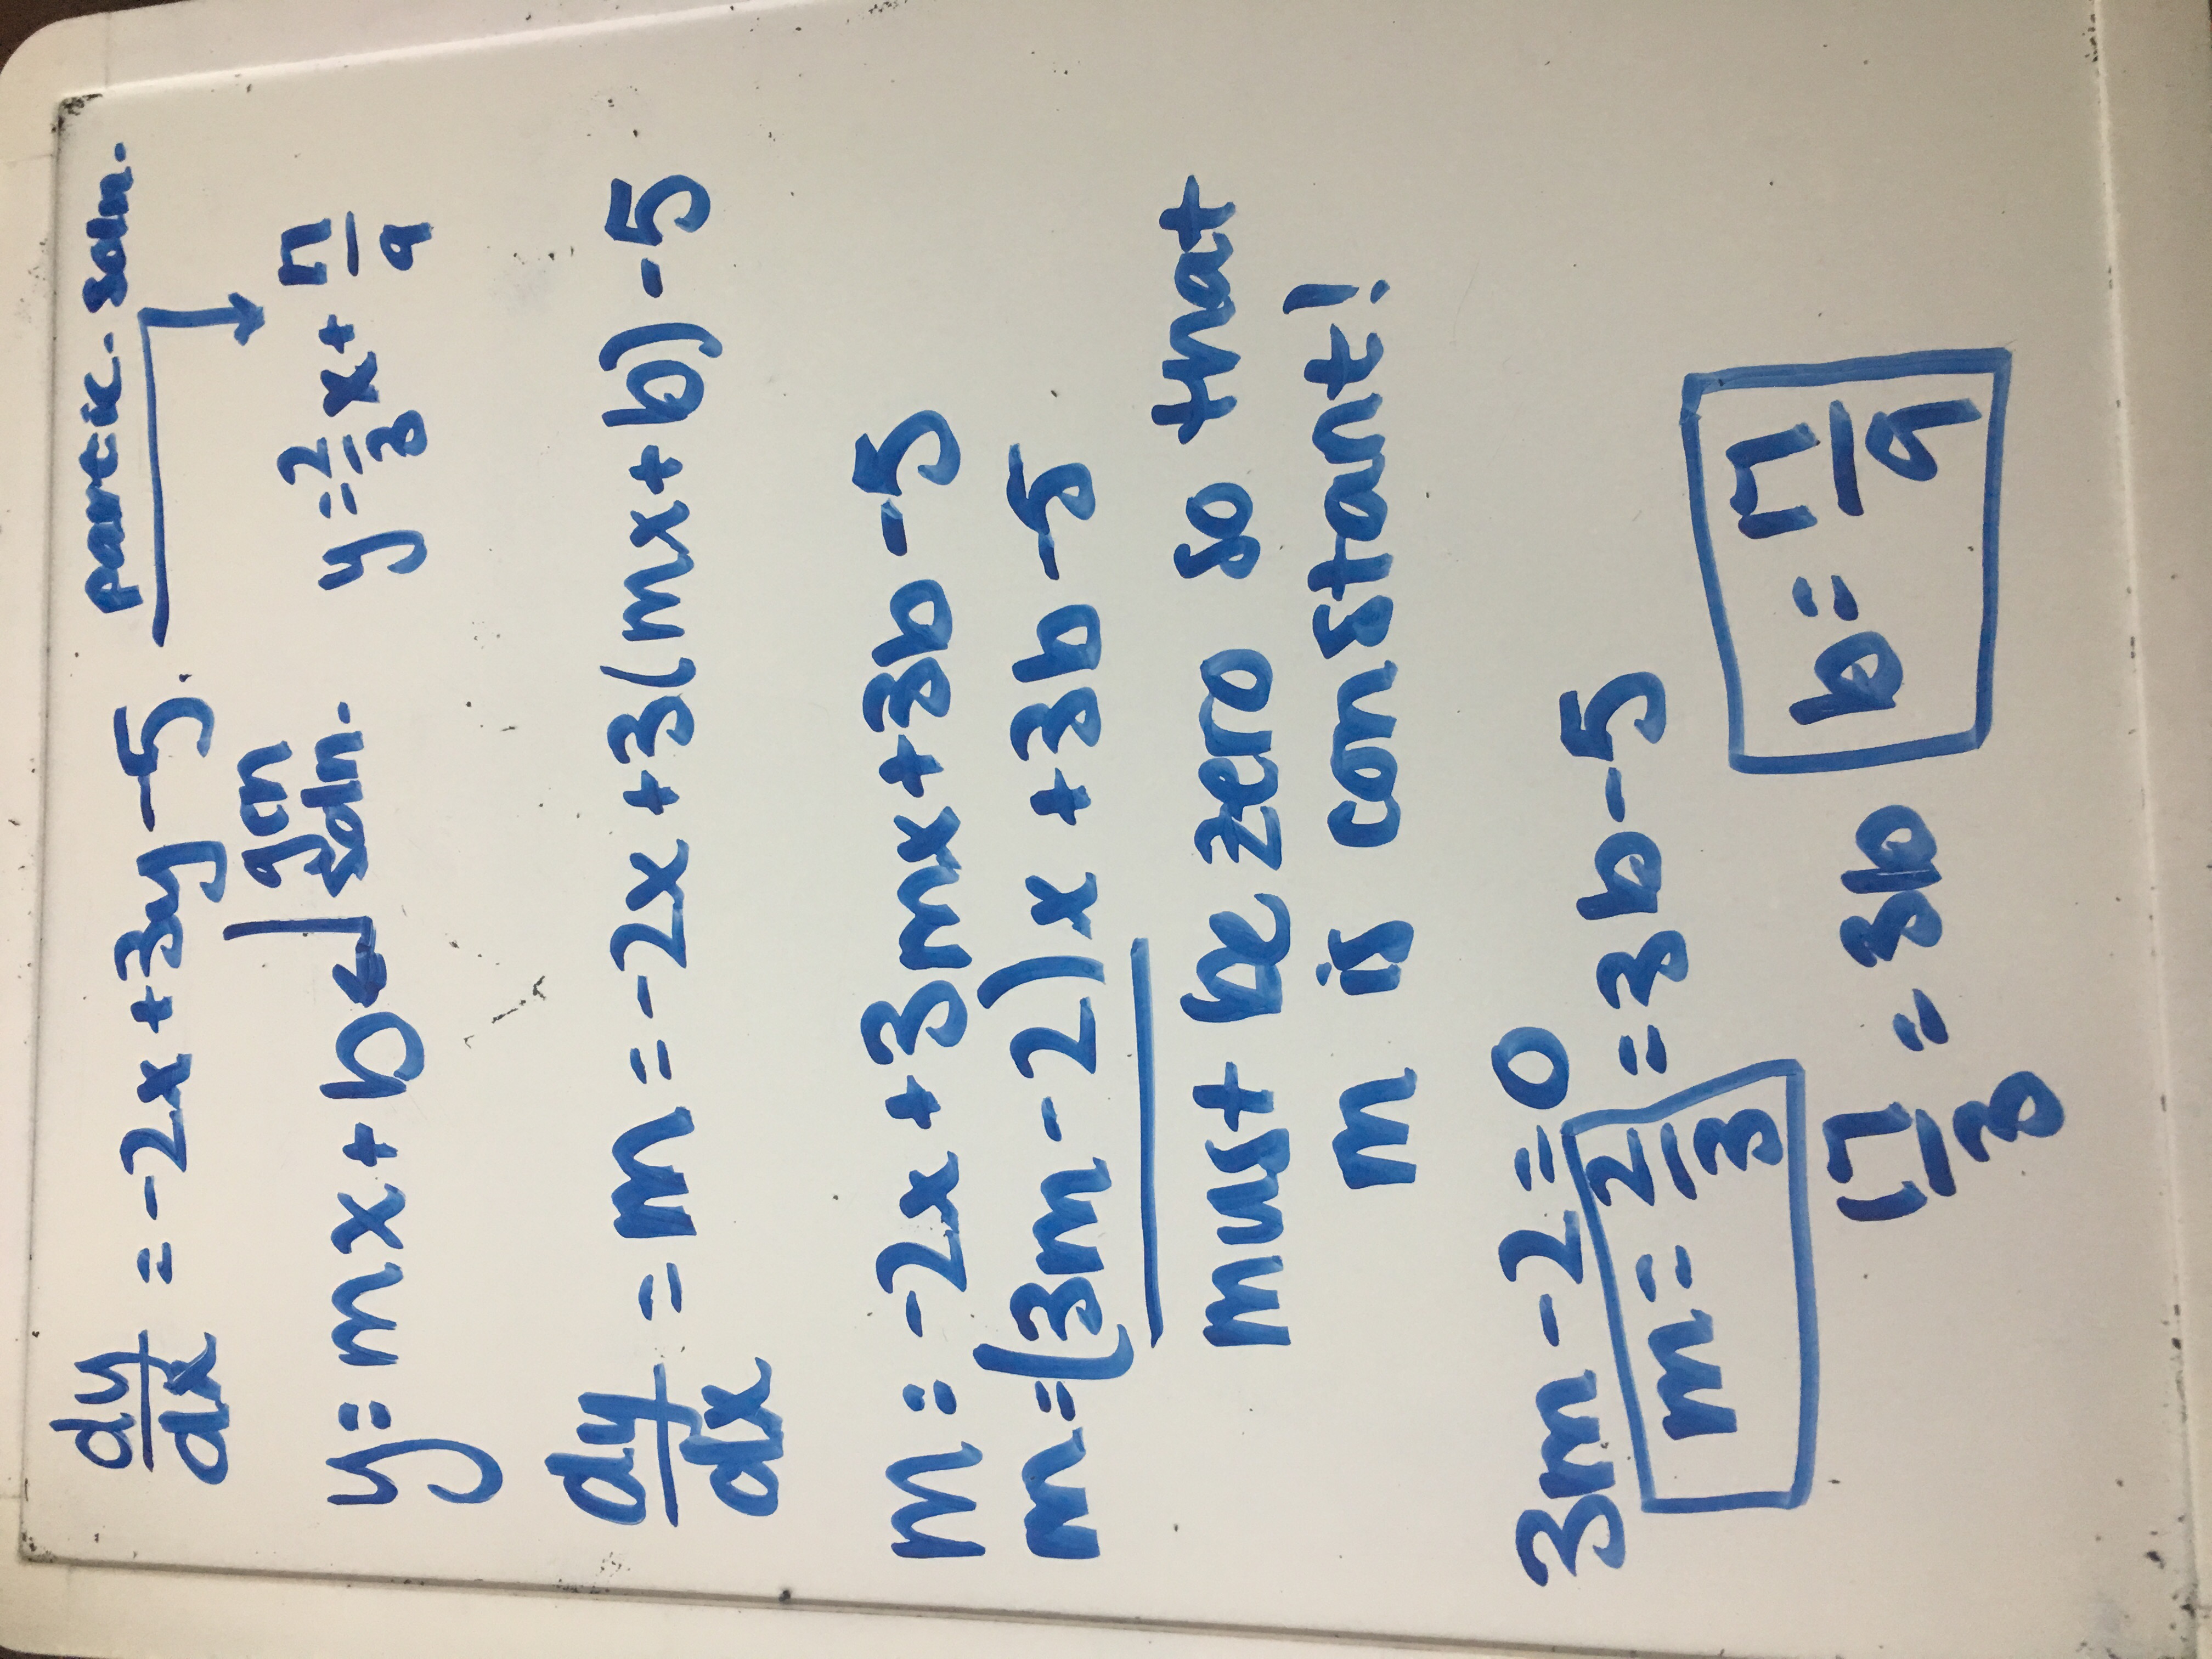 dy/dx = -2x + 3y - 5.
partic. soln.
gen soln.
y = mx + b
y = 2/3 x + 17/9
dy/dx = m = -2x + 3(mx + b) - 5
m = -2x + 3mx + 3b - 5
m = (3m - 2)x + 3b - 5
must be zero so that
m is constant!
3m - 2 = 0
m = 2/3 = 3b - 5
17/3 = 3b
b = 17/9